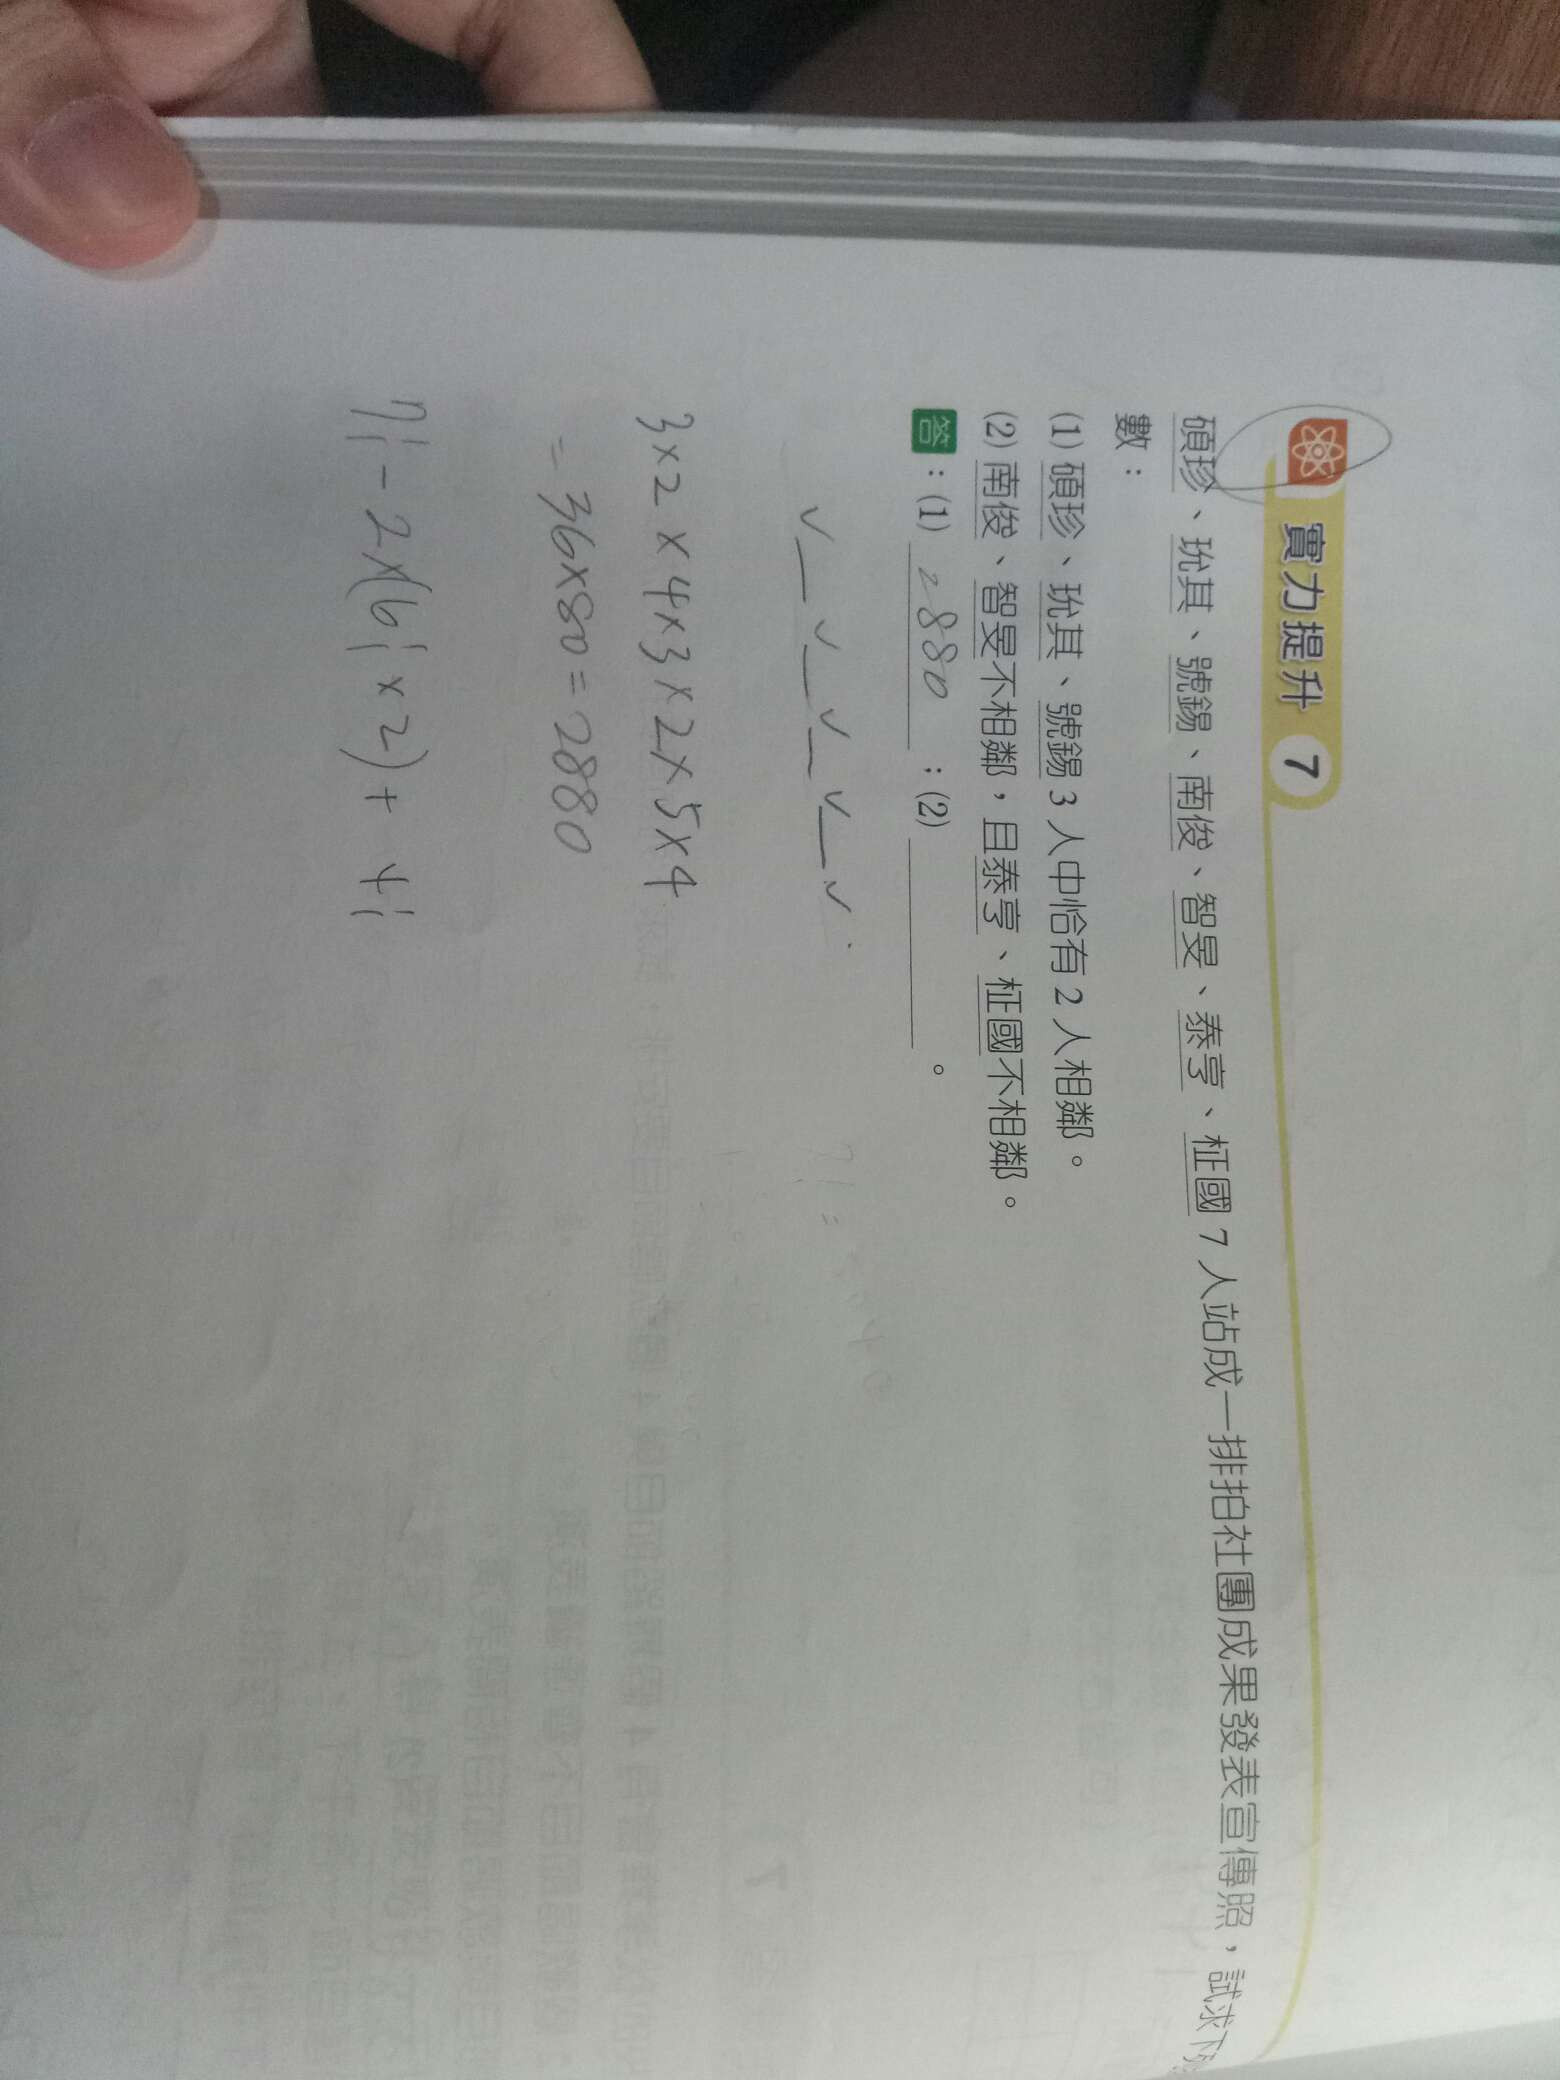 實力提升 7
碩珍、玧其、號錫、南俊、智旻、泰亨、柾國 7 人站成一排拍社團成果發表宣傳照，試求下列
數：
(1) 碩珍、玧其、號錫 3 人中恰有 2 人相鄰。
(2) 南俊、智旻不相鄰，且泰亨、柾國不相鄰。
答：(1) 2880 ；(2) 。
3×2×4×3×2×5×4
=36×80=2880
7!-2×(6!×2)+4!